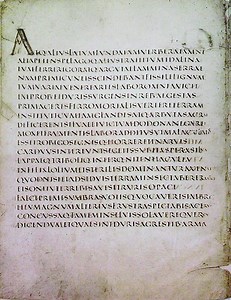 ATQALIVSLATVMFVNDAIAMVERBERATAMNE
ALTAPETENSPELAGOQALIVSTRAHITVMIDALINA
TVMFERRIRIGORATQARGVTAELAMMINASERRAE
NAMPRIMICVNEISSCINDEBANTFISSILELIGNVM
TVMVARIAEVENEREARTESLABOROMNIAVICIT
IMPROBVSETDVRISVRGENSINREBVSEGESTAS
PRIMACERESFERROMORTALISVERTERETERRAM
INSTITVITCVMIAMGLANDESATQARBVTASACRAE
DEFICERENTSILVAEETVICTVMDODONANEGARET
MOXETFRVMENTISLABORADDITVSVTMALACVLMOS
ESSETROBIGOSEGNISQHORRERETINARVIS
CARDVVSINTEREVNTSEGETESSVBITASPERASILVA
LAPPAEQTRIBOLIQINTERQNITENTIACVLTA
INFELIXLOLIVMETSTERILESDOMINANTVRAVENAE
QVODNISIETADSIDVISTERRAMINSECTABERERASTRIS
ETSONITVTERREBISAVESETRVRISOPACI
FALCEPREMESVMBRASVOTISQVOCAVERISIMBRE
HEVMAGNVMALTERIVSFRVSTRASPECTABISACER
CONCVSSAQFAMEMINSILVISSOLABEREQVERCV
DICENDVMETQVAESINTDVRISAGRESTIBARMA